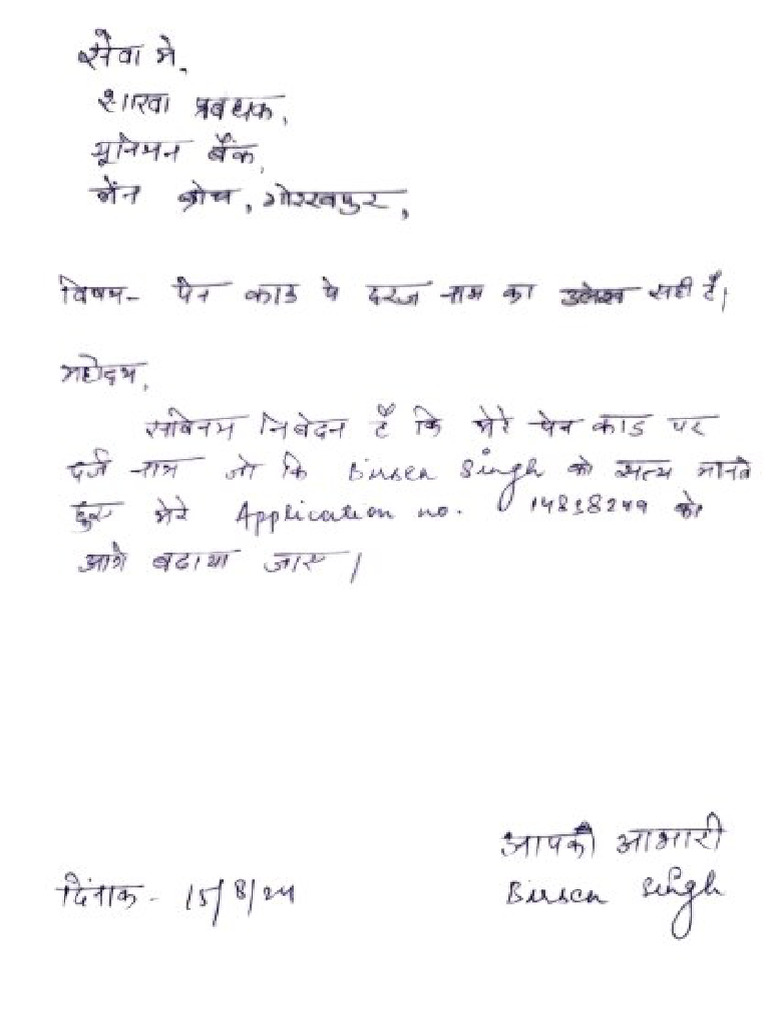 सेवा मे,
शाखा प्रबंधक,
यूनियन बैंक,
मेंन ब्रांच, गोरखपुर,
विषय- पेन काड पे दरज नाम का उलेख सही है।
महोदय,
सविनय निवेदन है कि मेरे पेन काड पर
दर्ज नाम जो कि Birsen Singh को सत्य मानते
हुए मेरे Application no. 14818249 को
आगे बढाया जाए।
आपकी आभारी
दिंनाक- 15/8/24
Birsen Singh